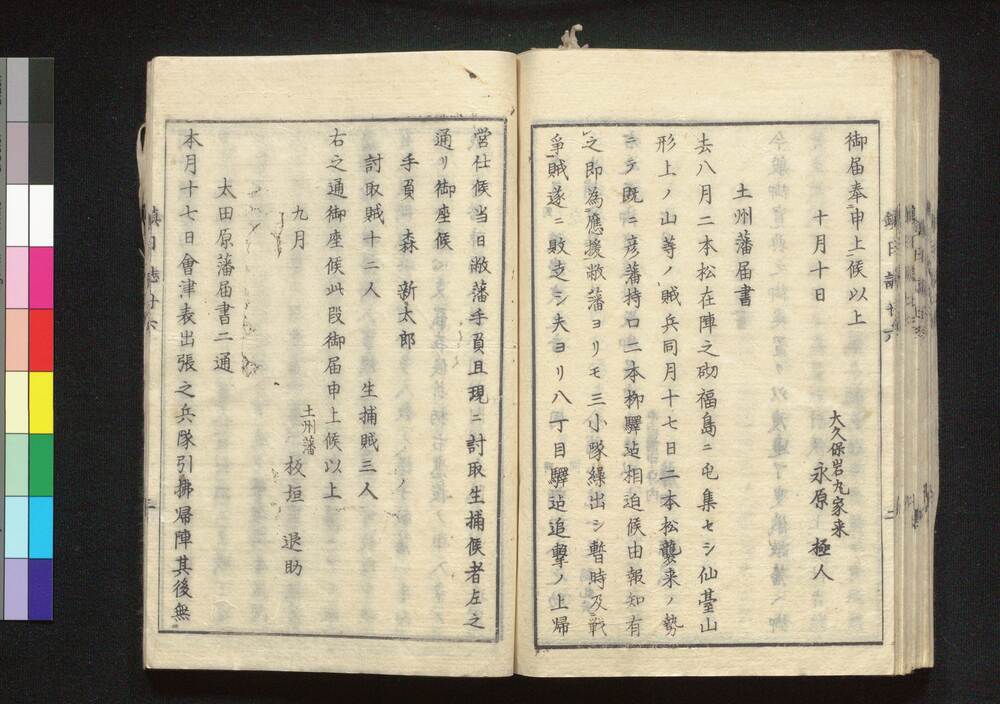 御届奉申上候以上
十月十日
大久保岩丸家来
永原極人
土州藩届書
去八月二本松在陣之砌福島ニ屯集セシ仙臺山
形上ノ山等ノ賊兵同月十七日二本松襲来ノ勢
ニテ既ニ彦藩持口二本柳驛迠相迫候由報知有
之即為應援敝藩ヨリモ三小隊繰出シ暫時及戰
爭賊遂ニ敗走シ夫ヨリ八丁目驛迠追撃ノ上帰
営仕候当日敝藩手負且現ニ討取生捕候者左之
通リ御座候
手負 森新太郎
討取賊十二人 生捕賊三人
右之通御座候此段御届申上候以上
九月
土州藩
板垣退助
太田原藩届書二通
本月十七日會津表出張之兵隊引拂帰陣其後無
鎮日誌廿六
二